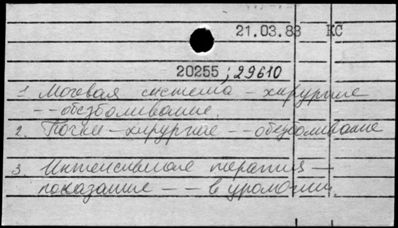 21.03.83 КС
20255; 29610
1. Мочевая система – хирургие
-- обезболивание.
2. Почки – хирургие -- обезболивание
3. Интенсивная терапия –
показание -- в урологии.